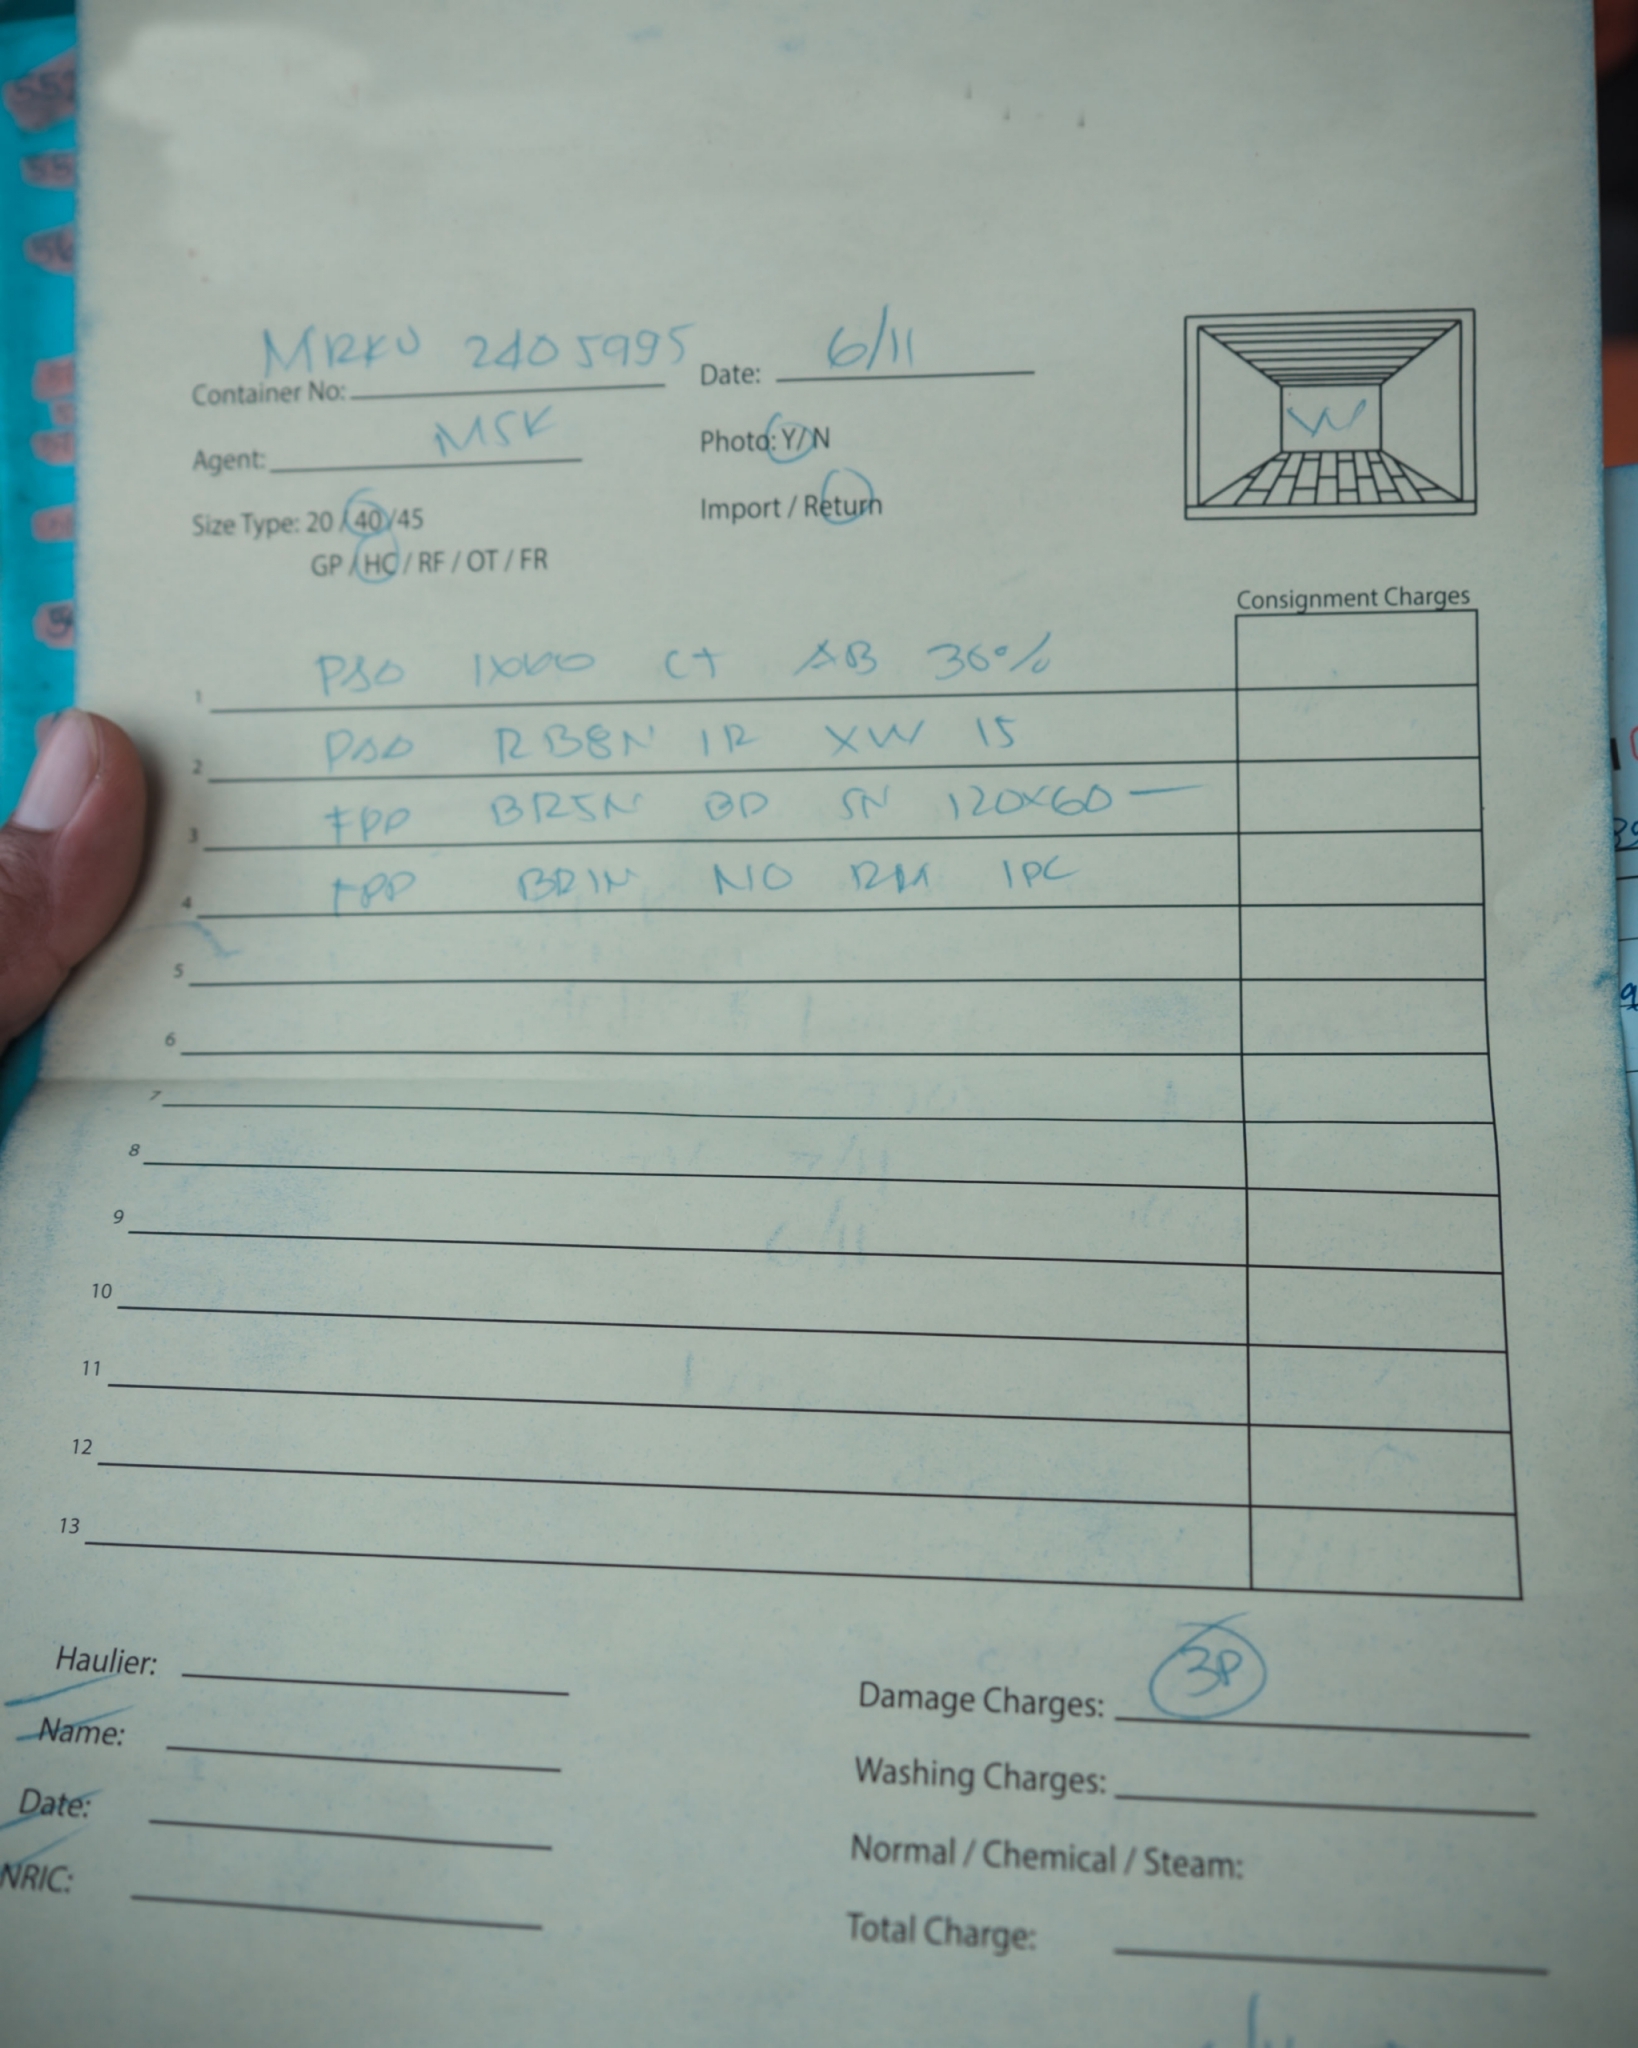 MRKU 2405995
Container No:
Date: 6/11
Agent: MSK
Photo: Y/N
Size Type: 20 / 40 / 45
Import / Return
GP / HC / RF / OT / FR
W
Consignment Charges
1 CT AB 30%
2 RB8N 1R XW 15
3 FPP BR5N BD SN 120x60 —
4 FPP BR1N NO RM 1PC
5
6
7
8
9
10
11
12
13
Haulier:
Name:
Date:
NRIC:
Damage Charges: 3P
Washing Charges:
Normal / Chemical / Steam:
Total Charge: